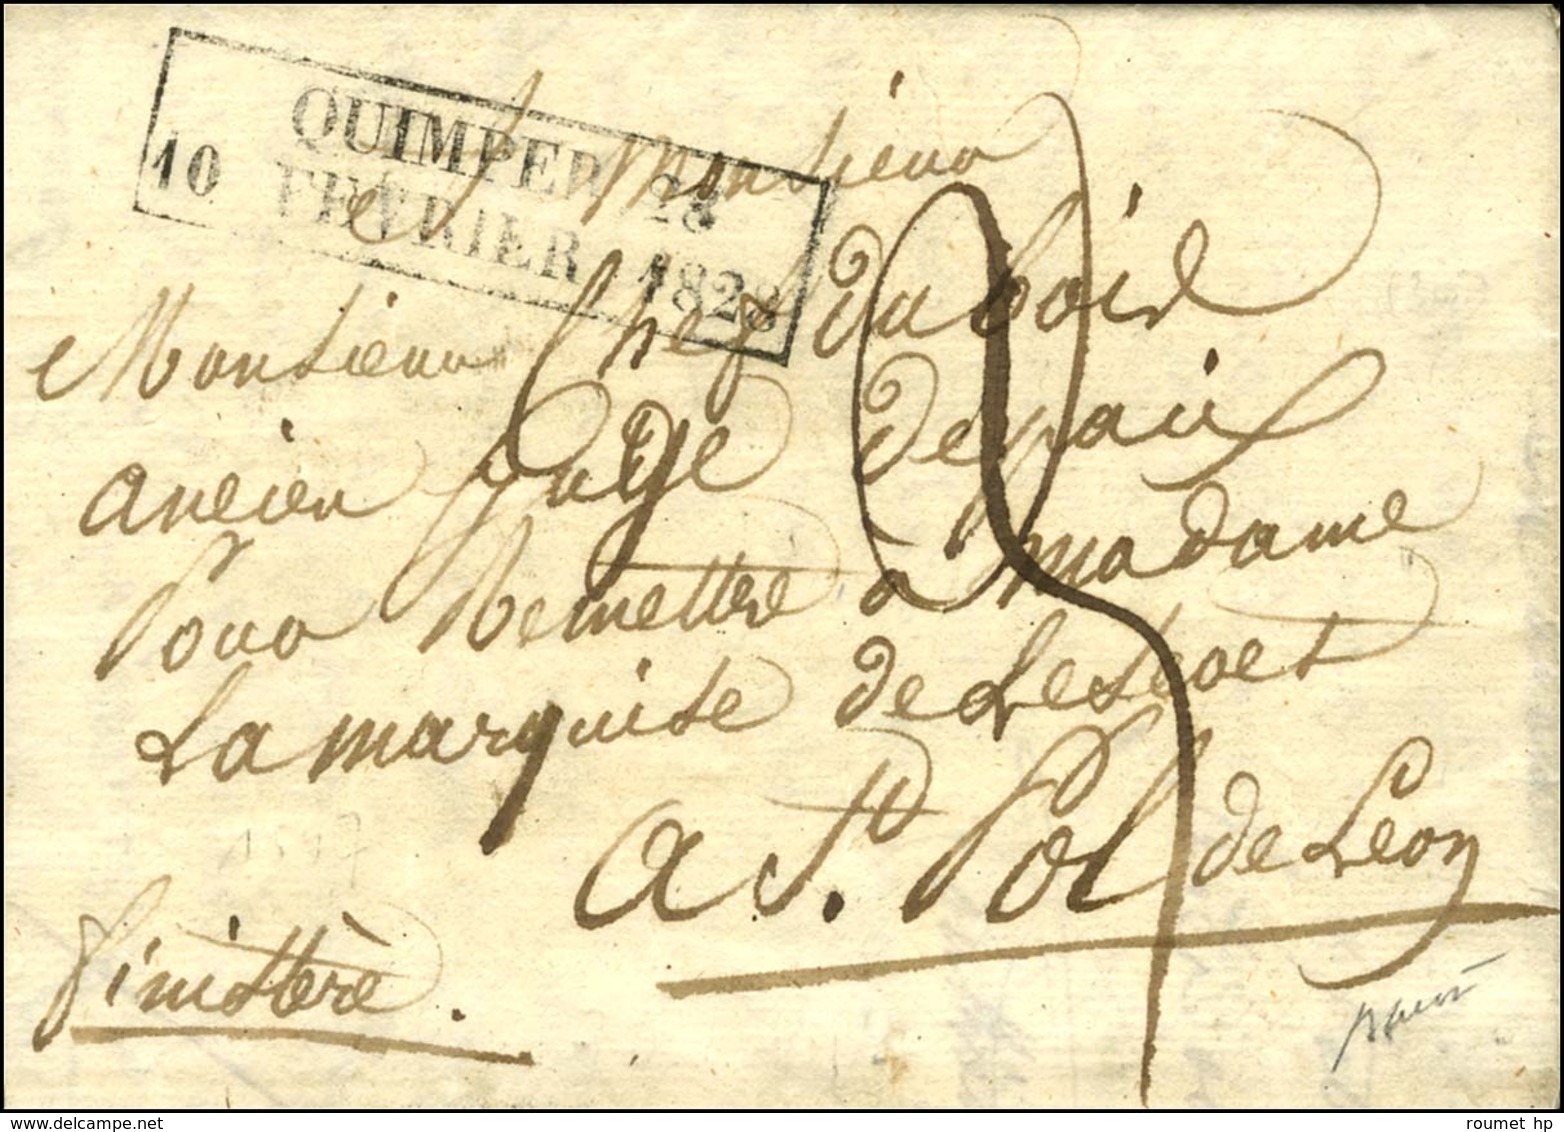 QUIMPER 28
10 FEVRIER 1828
A Monsieur
Monsieur Chef du bois
ancien Juge de paix
Pour Remettre à Madame
La marquise de Lescoet
a St. Pol de Leon
finistère.
roumet hp